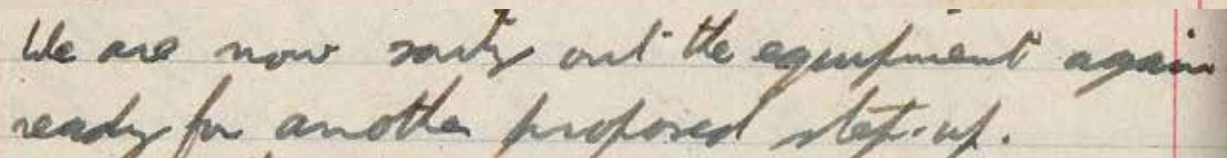 We are now sorting out the equipment again
ready for another proposed step-up.